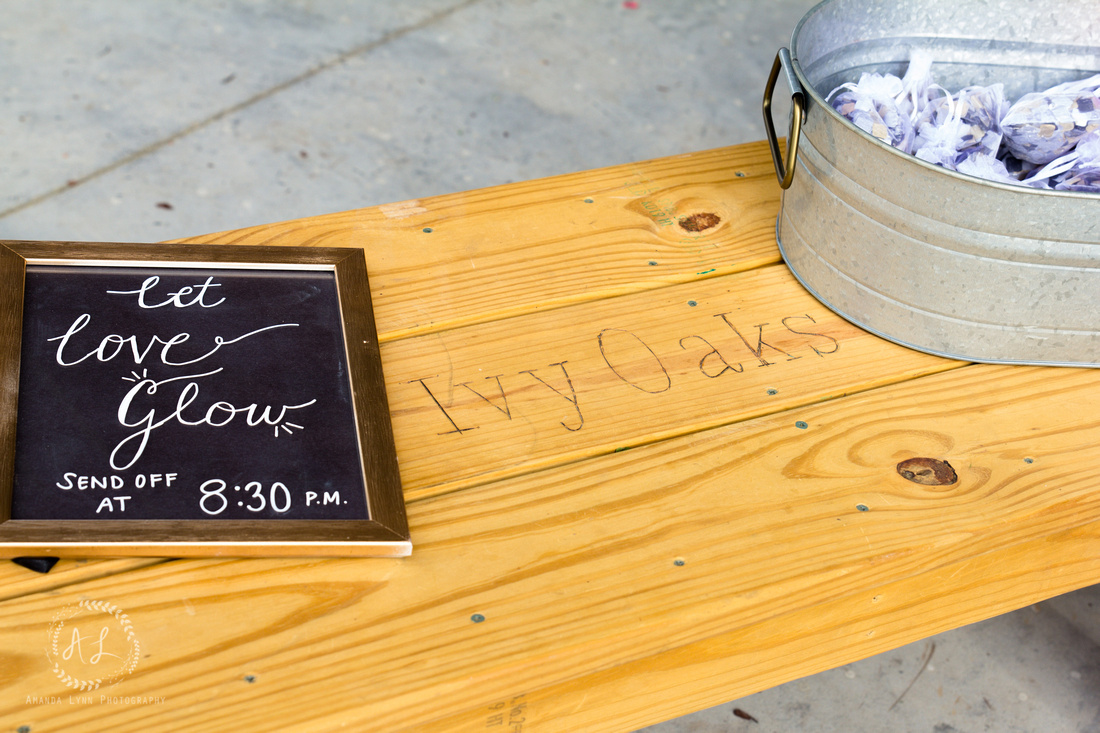 Let
love
Glow
SEND OFF
AT 8:30 P.M.
Ivy Oaks
AL
AMANDA LYNN PHOTOGRAPHY